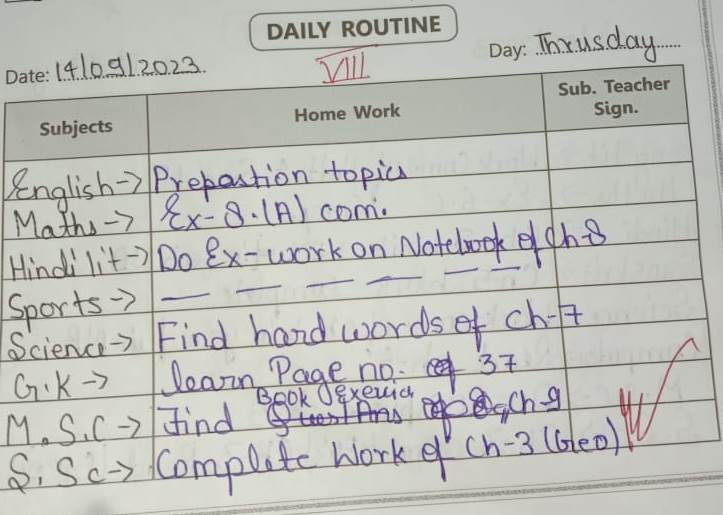 DAILY ROUTINE
Date: 14/09/2023. VIII Day: Thrusday.....
Subjects Home Work Sub. Teacher Sign.
English-> Prepostion topics
Maths-> Ex-8.(A) com.
Hindi lit-> Do Ex-work on Notebook of Ch-8
Sports-> — — — — —
Science-> Find hard words of ch-7
G.K-> learn Page no. 37
M.S.C-> Find Book Exercia Ch-9
S.Sc-> Complete Work of Ch-3 (Geo)